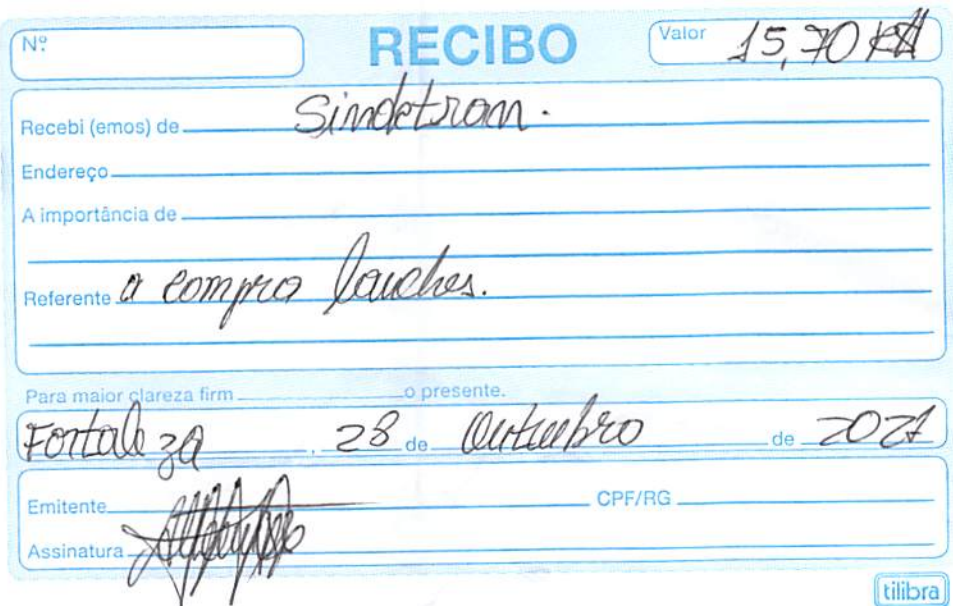 Nº
RECIBO
Valor 15,70
Recebi (emos) de Sindetran.
Endereço
A importância de
Referente a compra lanches.
Para maior clareza firm o presente.
Fortaleza, 28 de Outubro de 2021
Emitente CPF/RG
Assinatura
tilibra